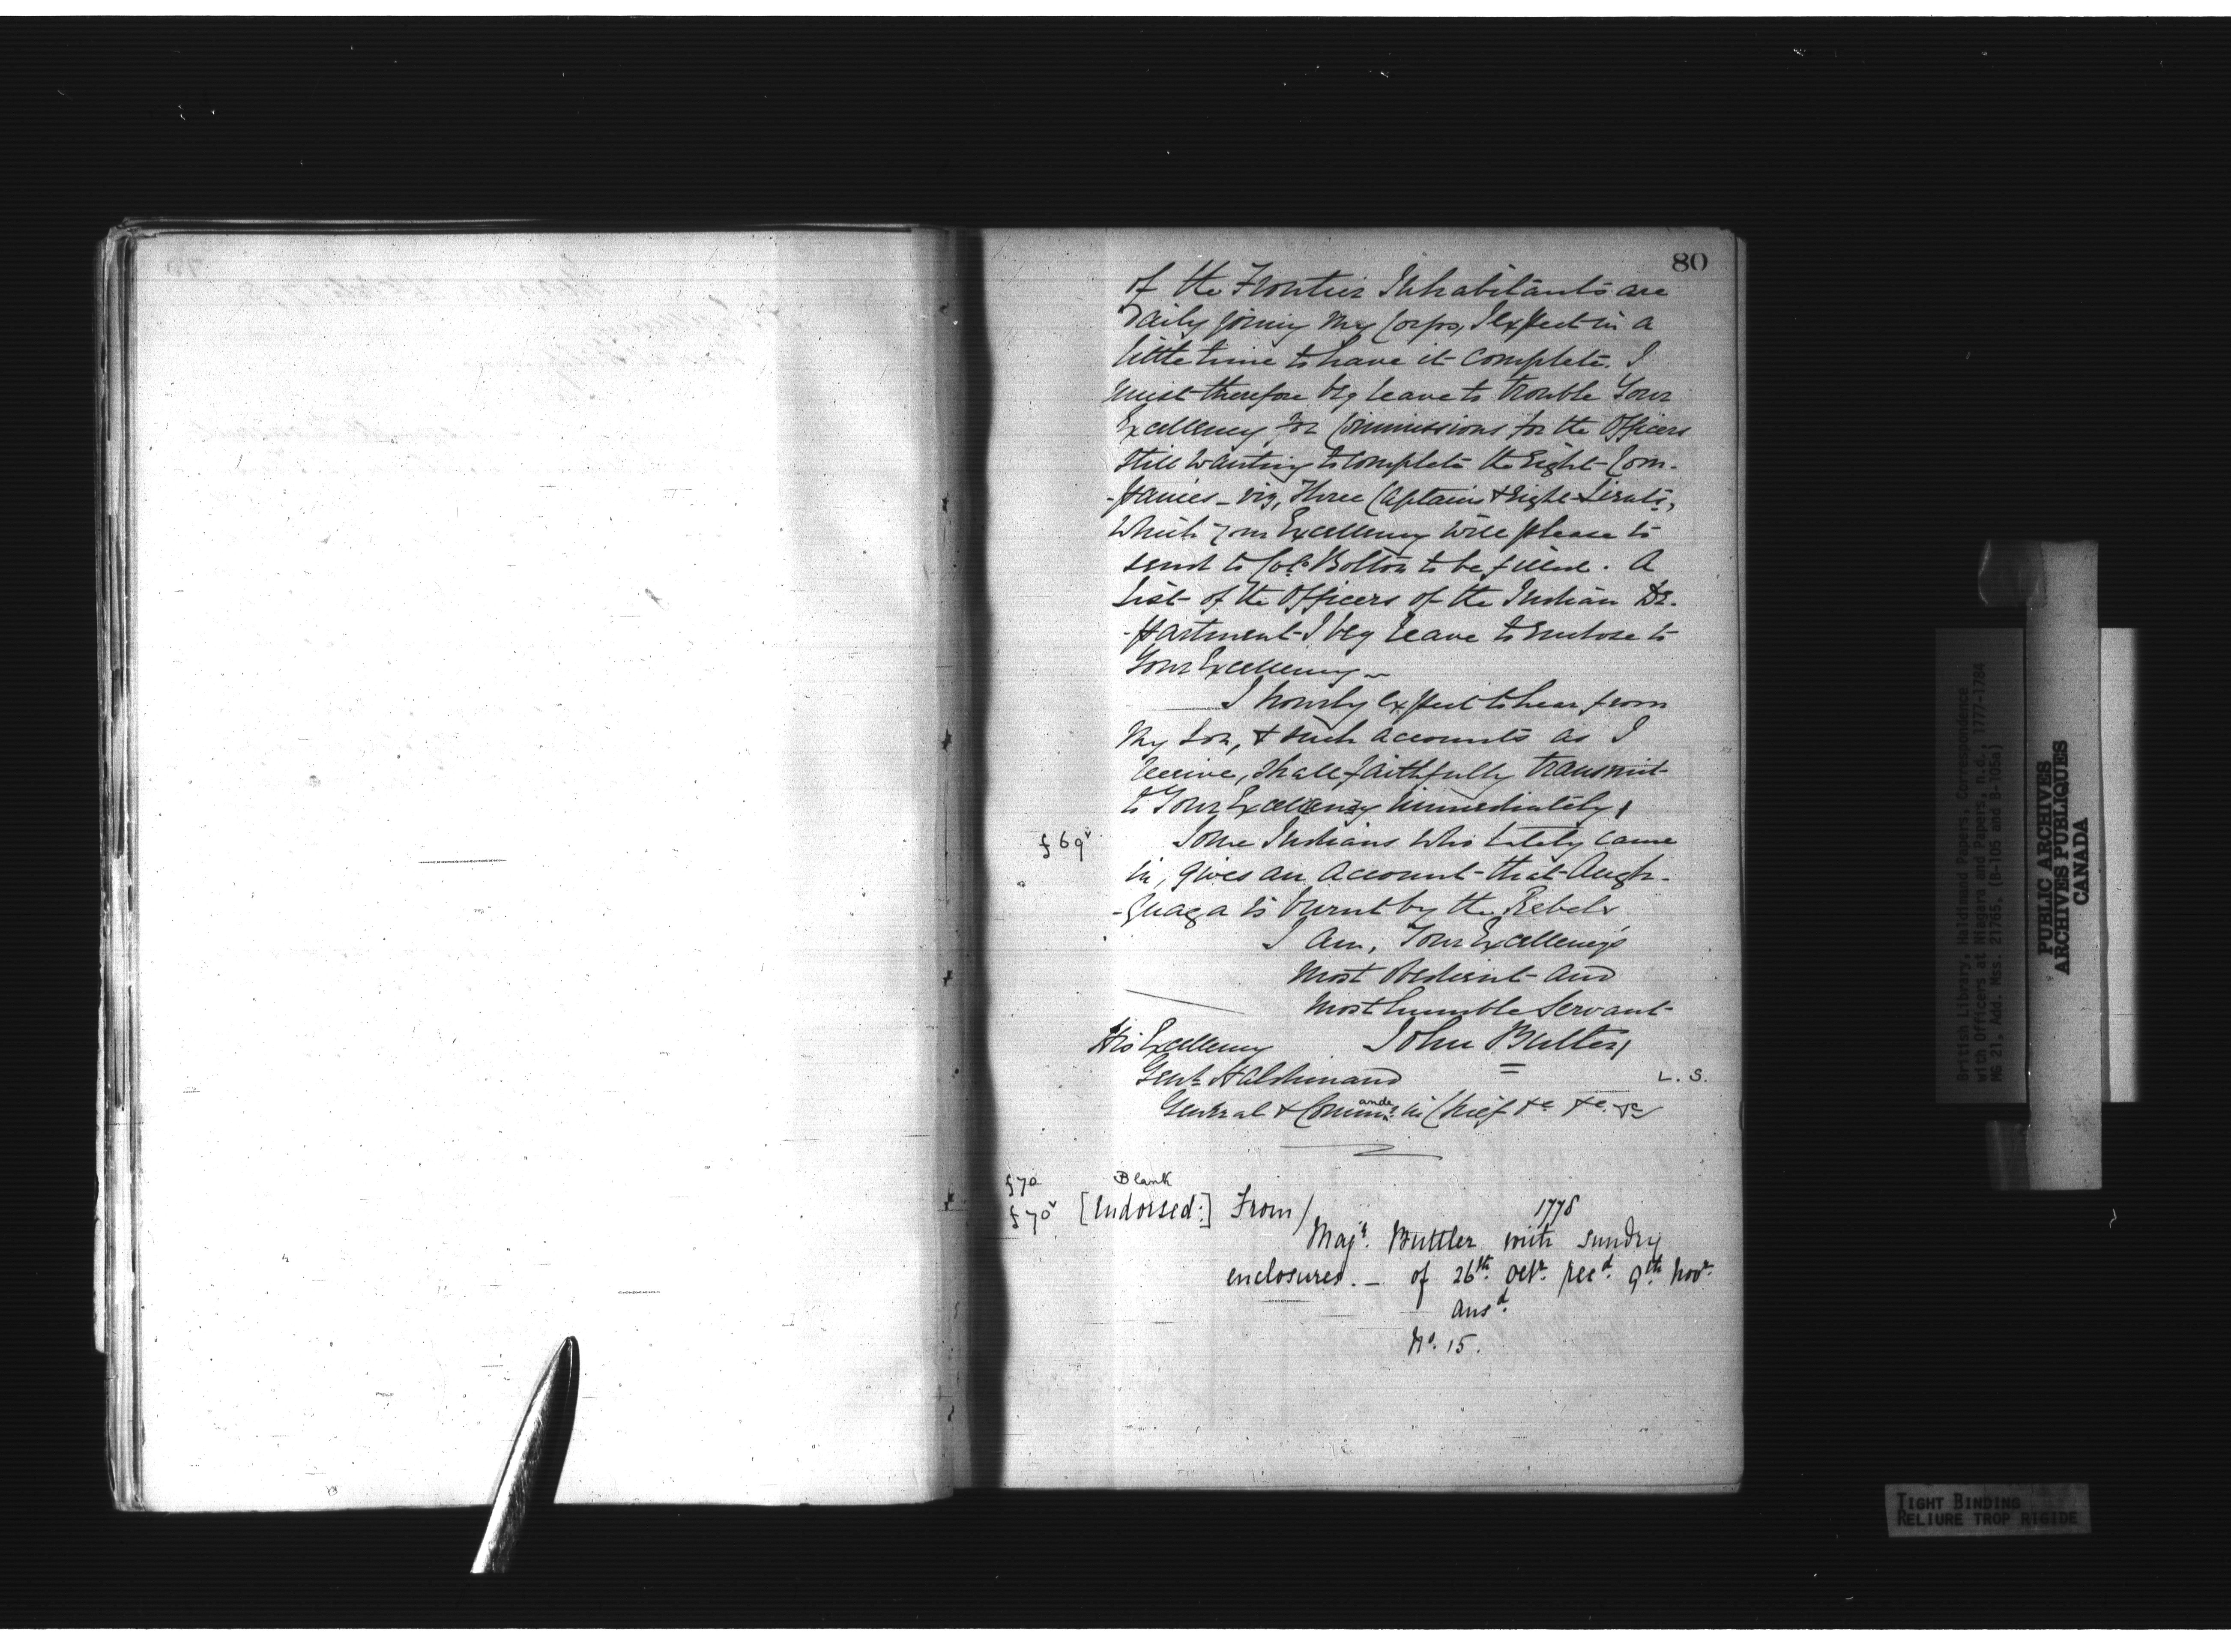 80
of the Frontier Inhabitants are
Daily joining My Corps, I expect in a
little time to have it complete. I
must therefore beg leave to trouble Your
Excellency for Commissions for the Officers
still wanting to complete the Eight Com-
-panies - viz, Three Captains & Eight Lieuts,
Which Your Excellency will please to
send to Col. Bolton to be filled. A
List of the Officers of the Indian De-
-partment I beg leave to enclose to
Your Excellency -
I hourly expect to hear from
My Son, & such accounts as I
receive, shall faithfully transmit
to Your Excellency immediately,
f 69v Some Indians who lately came
in, gives an Account that Augh-
-quaga is burnt by the Rebels
I Am, Your Excellency's
Most Obedient And
Most humble Servant
His Excellency John Butler,
Genl. Haldimand L. S.
General & Commander in Chief &c &c. &c
f 70 Blank
f 70v [Indorsed:] From / 1778
Majr. Buttler with sundry
enclosures. - of 26th. Octr. recd. 9th. Novr.
ansd.
No. 15.
British Library, Haldimand Papers. Correspondence
with Officers at Niagara and Papers, n.d., 1777-1784
MG 21, Add. Mss. 21765, (B-105 and B-105a)
PUBLIC ARCHIVES
ARCHIVES PUBLIQUES
CANADA
TIGHT BINDING
RELIURE TROP RIGIDE